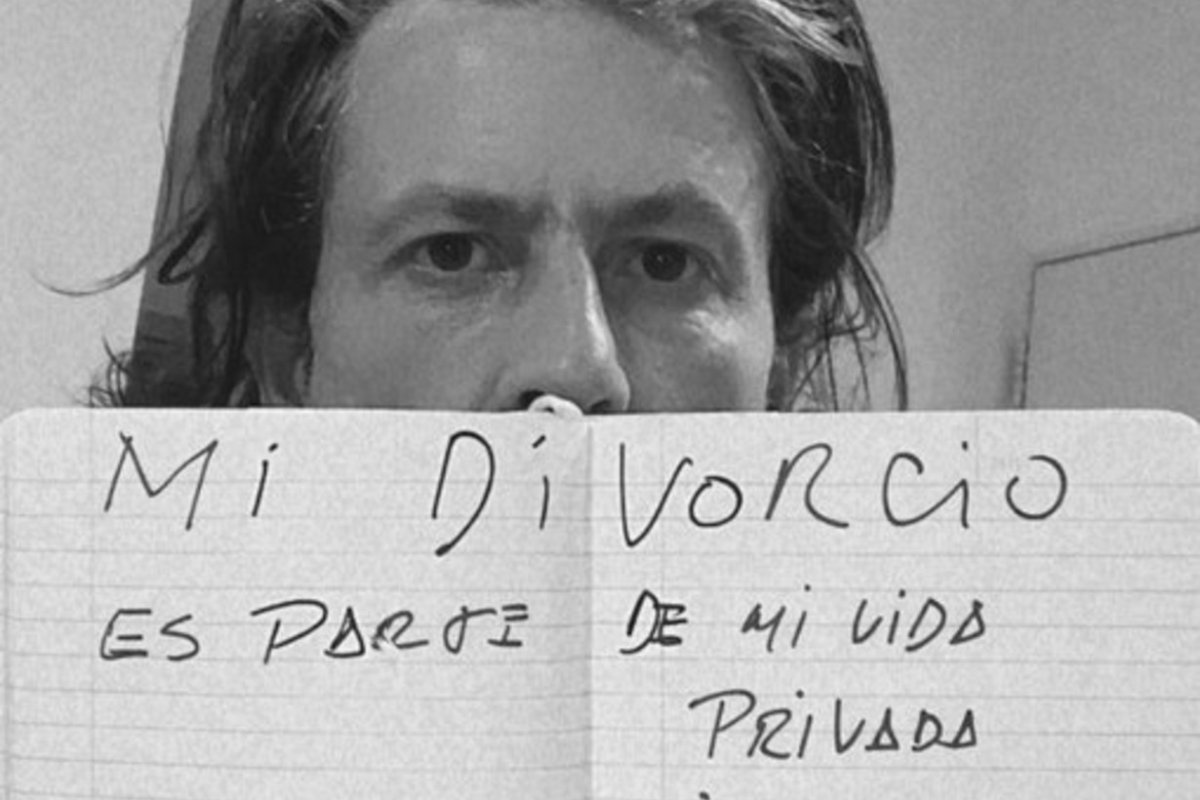 Mi DiVORCiO
ES PARTE DE Mi ViDA
PRiVADA